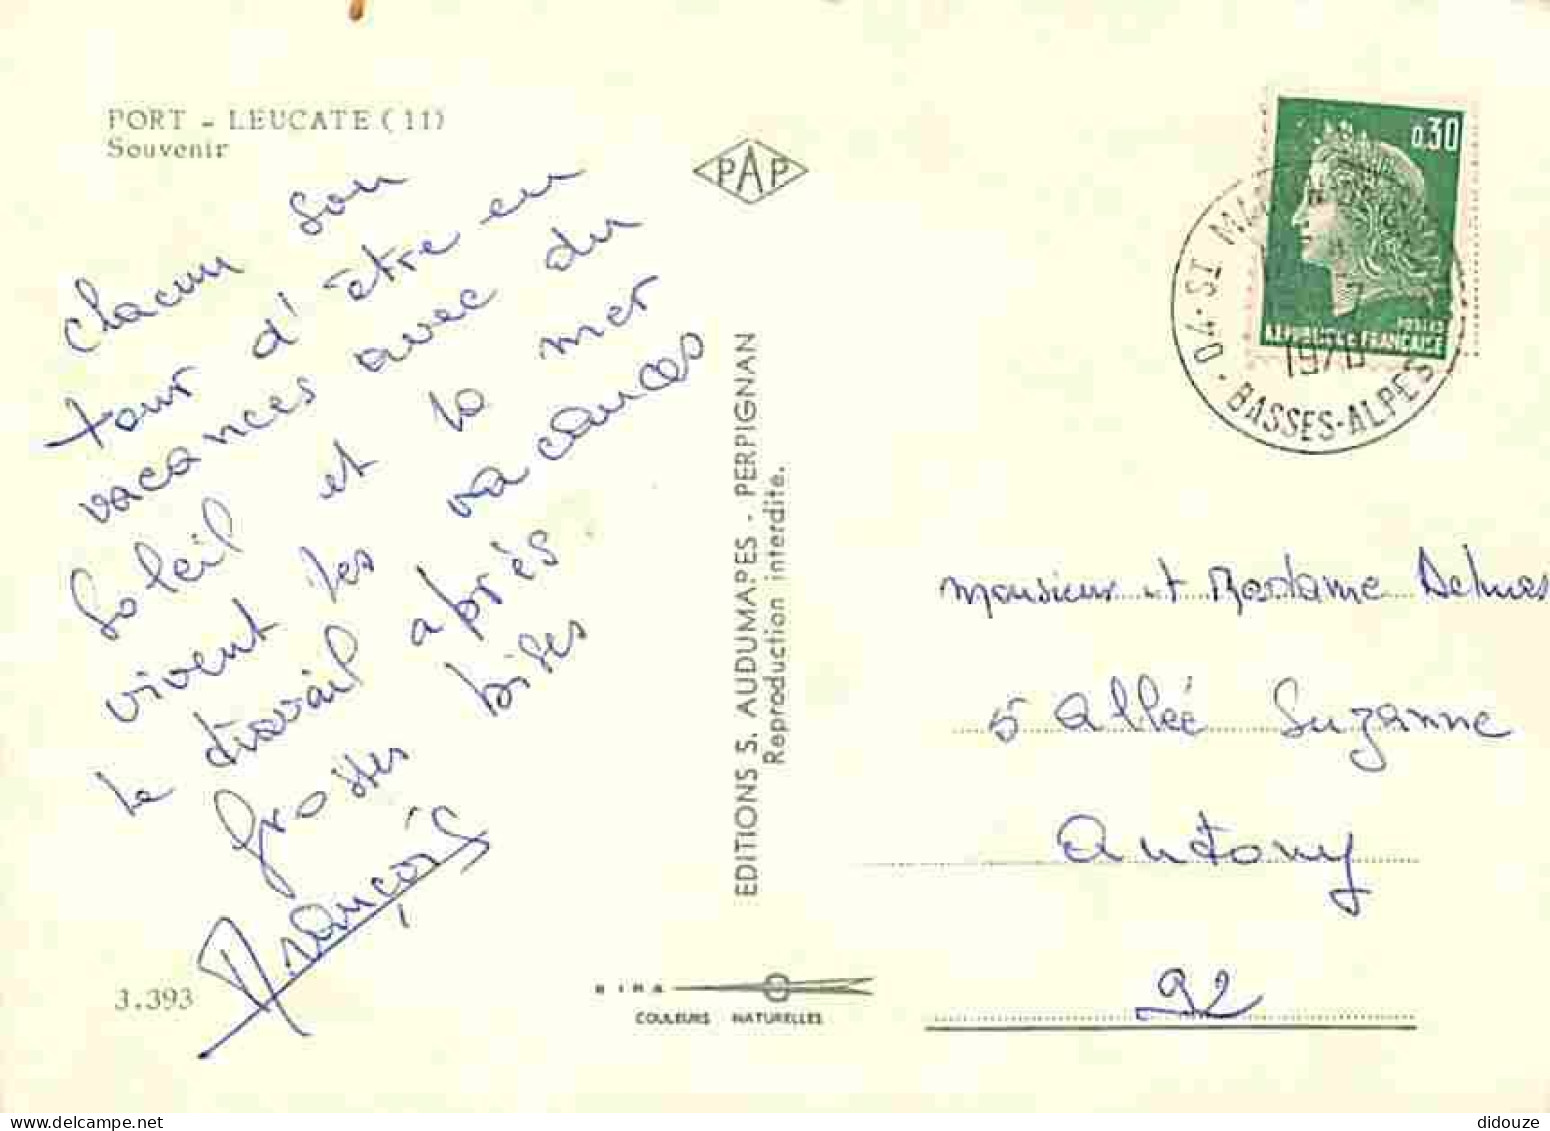 PORT - LEUCATE (11)
Souvenir
chacun son
tour d'être en
vacances avec du
Soleil et la mer
vivent les vacances
le travail après
grosses bises
François
3.393
PAP
EDITIONS S. AUDUMAPES - PERPIGNAN
Reproduction interdite.
COULEURS NATURELLES
0,30
POSTES
REPUBLIQUE FRANÇAISE
04 - ST
1970
BASSES-ALPES
Monsieur et Madame
5 allée Suzanne
Antony
92
didouze